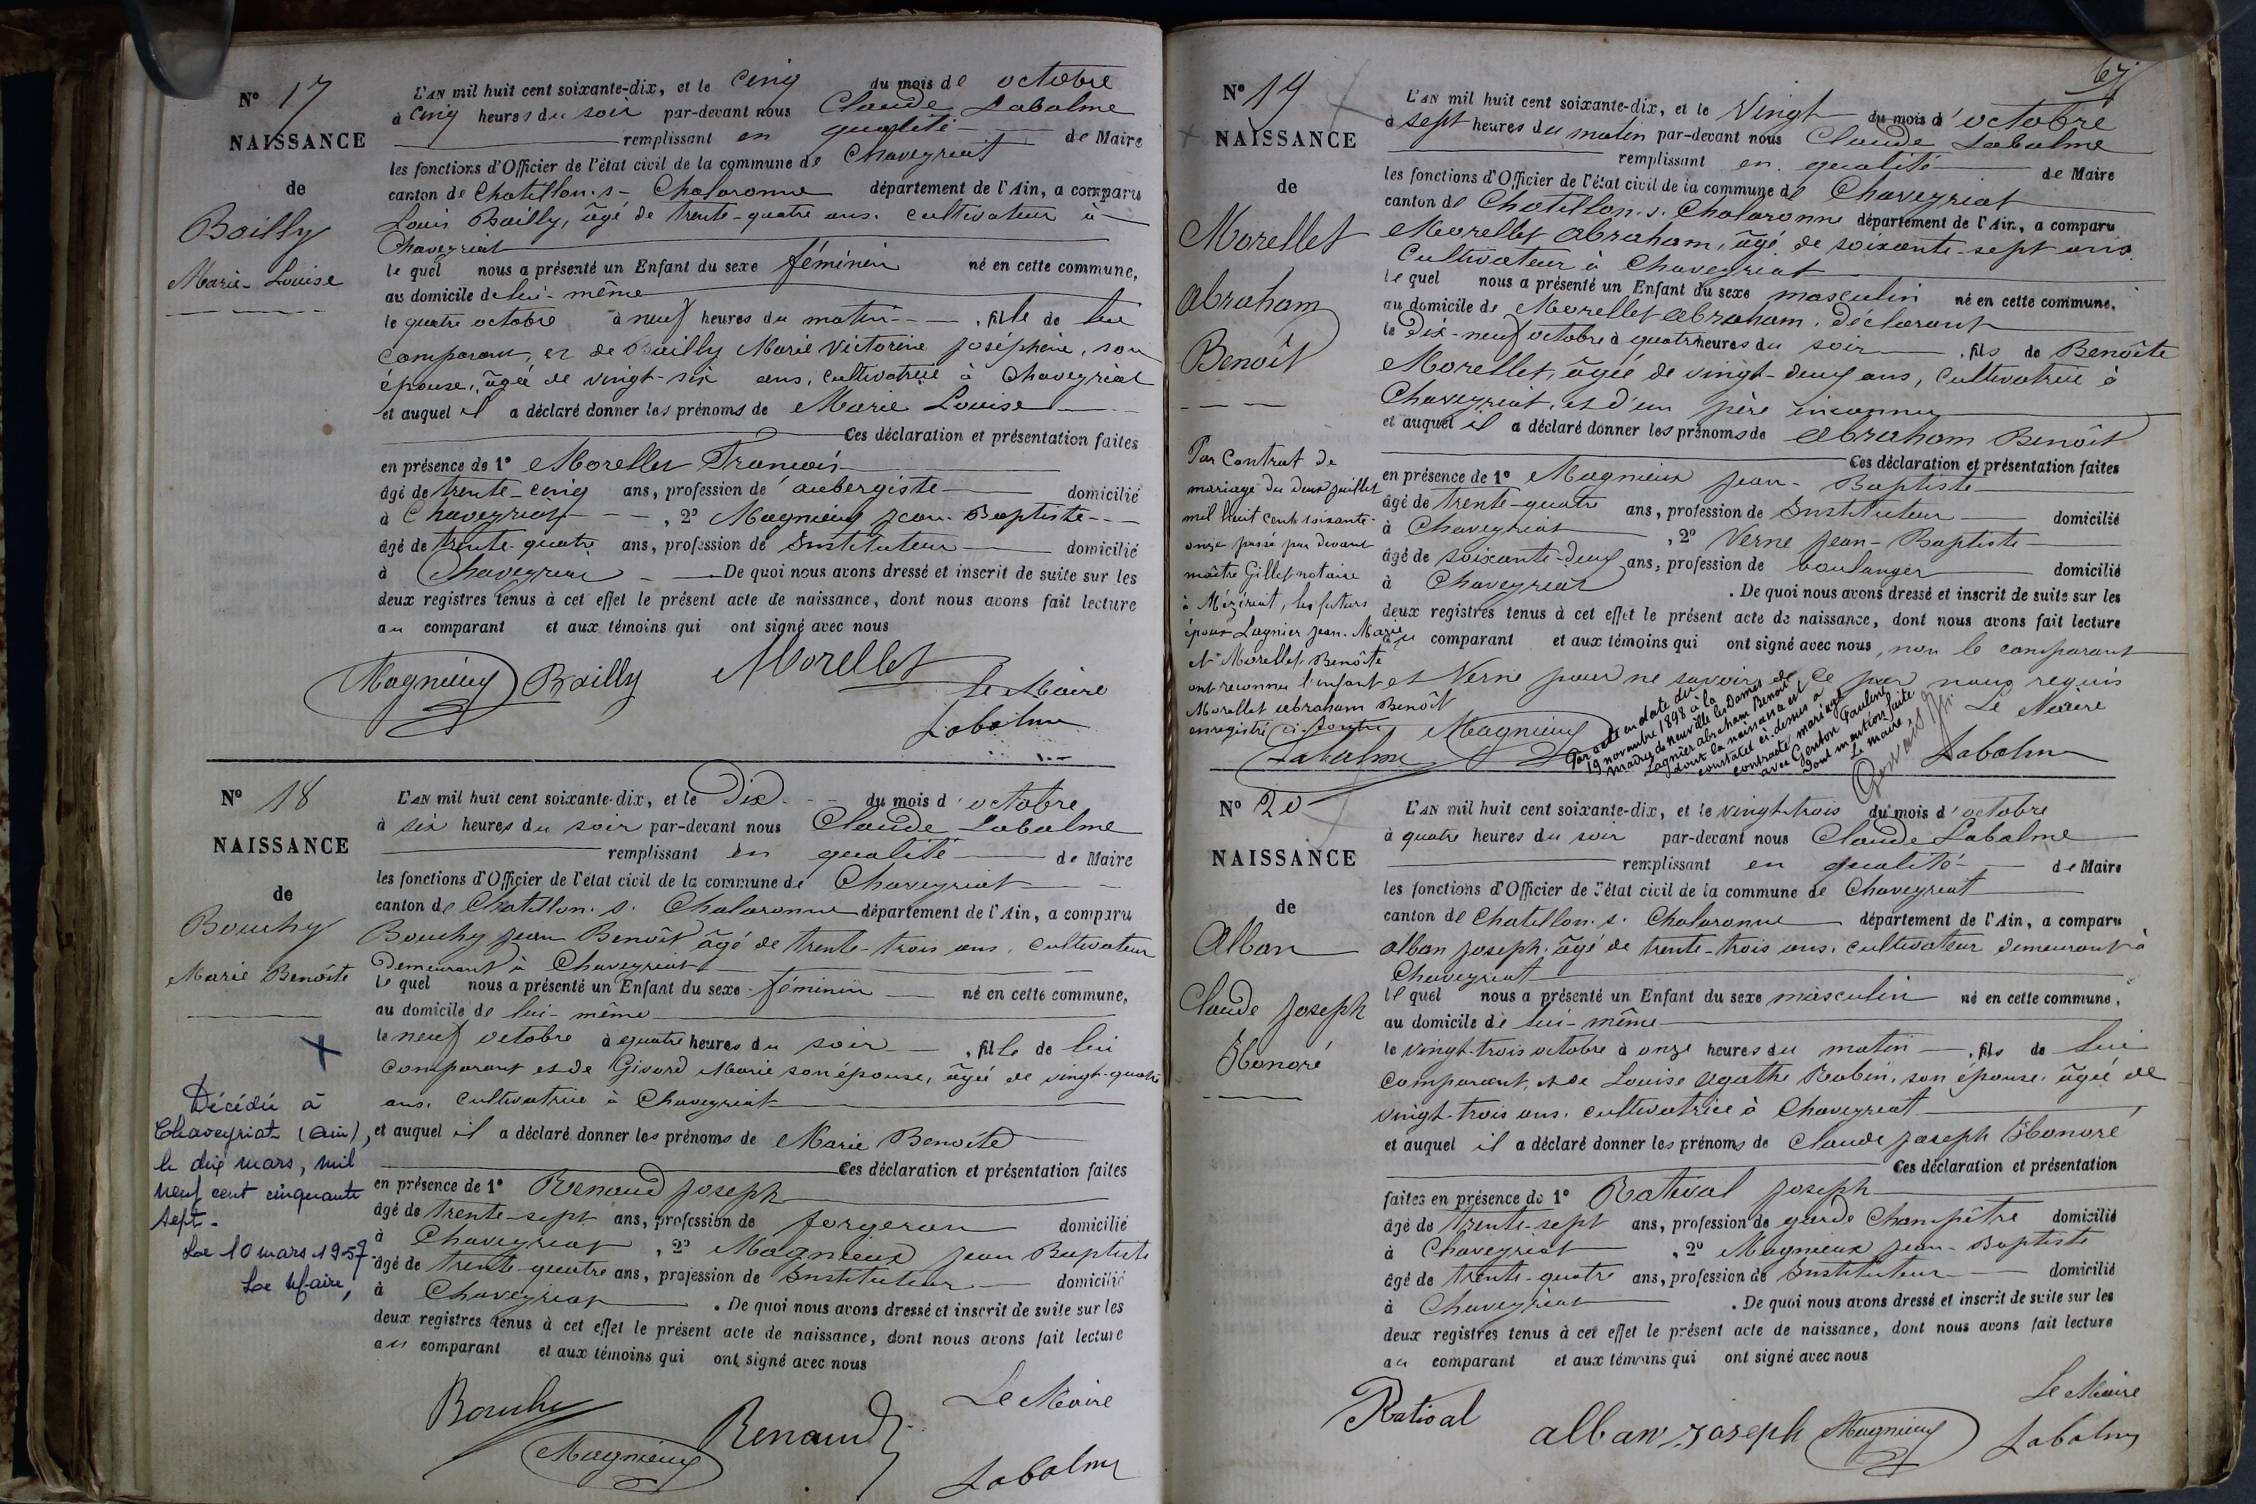 N° 17
NAISSANCE
de
Bailly
Marie-Louise
L'AN mil huit cent soixante-dix, et le cinq du mois de octobre
à cinq heures du soir par-devant nous Claude Labalme
remplissant en qualité de Maire
les fonctions d'Officier de l'état civil de la commune de Chaveyriat
canton de Chatillon-s-Chalaronne département de l'Ain, a comparu
Louis Bailly, âgé de trente-quatre ans, cultivateur à
Chaveyriat
le quel nous a présenté un Enfant du sexe féminin né en cette commune,
au domicile de lui-même
le quatre octobre à neuf heures du matin, fille de lui
comparant, et de Bailly Marie Victorine Joséphine, son
épouse, âgée de vingt-six ans, cultivatrice à Chaveyriat
et auquel il a déclaré donner les prénoms de Marie Louise
Ces déclaration et présentation faites
en présence de 1° Morellet François
âgé de trente-cinq ans, profession de aubergiste domicilié
à Chaveyriat, 2° Magnieux Jean-Baptiste
âgé de trente-quatre ans, profession de Instituteur domicilié
à Chaveyriat De quoi nous avons dressé et inscrit de suite sur les
deux registres tenus à cet effet le présent acte de naissance, dont nous avons fait lecture
au comparant et aux témoins qui ont signé avec nous
Magnieux Bailly Morellet
Le Maire
Labalme
N° 18
NAISSANCE
de
Bouchy
Marie Benoîte
Décédée à
Chaveyriat (Ain),
le dix mars, mil
neuf cent cinquante
sept.
Le 10 mars 1957.
Le Maire,
L'AN mil huit cent soixante-dix, et le Dix du mois d'octobre
à six heures du soir par-devant nous Claude Labalme
remplissant en qualité de Maire
les fonctions d'Officier de l'état civil de la commune de Chaveyriat
canton de Chatillon-s-Chalaronne département de l'Ain, a comparu
Bouchy Jean Benoît âgé de trente-trois ans, cultivateur
Demeurant à Chaveyriat
le quel nous a présenté un Enfant du sexe féminin né en cette commune,
au domicile de lui-même
le neuf octobre à quatre heures du soir, fille de lui
comparant et de Givord Marie son épouse, âgée de vingt-quatre
ans, cultivatrice à Chaveyriat
et auquel il a déclaré donner les prénoms de Marie Benoîte
Ces déclaration et présentation faites
en présence de 1° Renaud Joseph
âgé de trente-sept ans, profession de forgeron domicilié
à Chaveyriat, 2° Magnieux Jean Baptiste
âgé de trente-quatre ans, profession de Instituteur domicilié
à Chaveyriat. De quoi nous avons dressé et inscrit de suite sur les
deux registres tenus à cet effet le présent acte de naissance, dont nous avons fait lecture
au comparant et aux témoins qui ont signé avec nous
Bouchy Renaud
Le Maire
Magnieux
Labalme
67
N° 19
NAISSANCE
de
Morellet
Abraham
Benoît
Par Contrat de
mariage du deux juillet
mil huit cent soixante-
onze passé par devant
maître Gillet notaire
à Mézériat, les futurs
époux Lagnier Jean-Marie
et Morellet Benoîte
ont reconnu l'enfant
Morellet Abraham Benoît
enregistré ci-contre
Labalme
L'AN mil huit cent soixante-dix, et le Vingt du mois d'octobre
à sept heures du matin par-devant nous Claude Labalme
remplissant en qualité de Maire
les fonctions d'Officier de l'état civil de la commune de Chaveyriat
canton de Chatillon-s-Chalaronne département de l'Ain, a comparu
Morellet Abraham, âgé de soixante-sept ans
Cultivateur à Chaveyriat
le quel nous a présenté un Enfant du sexe masculin né en cette commune,
au domicile de Morellet Abraham, déclarant
le Dix-neuf octobre à quatre heures du soir, fils de Benoîte
Morellet, âgée de vingt-deux ans, cultivatrice à
Chaveyriat, et d'un père inconnu
et auquel il a déclaré donner les prénoms de Abraham Benoît
Ces déclaration et présentation faites
en présence de 1° Magnieux Jean-Baptiste
âgé de trente-quatre ans, profession de Instituteur domicilié
à Chaveyriat, 2° Verne Jean-Baptiste
âgé de soixante-deux ans, profession de boulanger domicilié
à Chaveyriat. De quoi nous avons dressé et inscrit de suite sur les
deux registres tenus à cet effet le présent acte de naissance, dont nous avons fait lecture
au comparant et aux témoins qui ont signé avec nous, non le comparant
et Verne pour ne savoir de ce par nous requis
Magnieux
Le Maire
Labalme
Par acte en date du
19 novembre 1898 à la
mairie de Neuville les Dames
Lagnier Abraham Benoît
dont la naissance est
constatée ci-dessus a
contracté mariage
avec Genton Pauline
Dont mention faite
Le maire,
N° 20
NAISSANCE
de
Alban
Claude Joseph
Honoré
L'AN mil huit cent soixante-dix, et le vingt-trois du mois d'octobre
à quatre heures du soir par-devant nous Claude Labalme
remplissant en qualité de Maire
les fonctions d'Officier de l'état civil de la commune de Chaveyriat
canton de Chatillon-s-Chalaronne département de l'Ain, a comparu
Alban Joseph, âgé de trente-trois ans, cultivateur demeurant à
Chaveyriat
le quel nous a présenté un Enfant du sexe masculin né en cette commune,
au domicile de lui-même
le vingt-trois octobre à onze heures du matin, fils de lui
comparant, et de Louise Agathe Robin, son épouse, âgée de
vingt-trois ans, cultivatrice à Chaveyriat
et auquel il a déclaré donner les prénoms de Claude Joseph Honoré
Ces déclaration et présentation
faites en présence de 1° Rativat Joseph
âgé de trente-sept ans, profession de garde Champêtre domicilié
à Chaveyriat, 2° Magnieux Jean-Baptiste
âgé de trente-quatre ans, profession de Instituteur domicilié
à Chaveyriat. De quoi nous avons dressé et inscrit de suite sur les
deux registres tenus à cet effet le présent acte de naissance, dont nous avons fait lecture
au comparant et aux témoins qui ont signé avec nous
Le Maire
Ratival Alban Joseph Magnieux Labalme